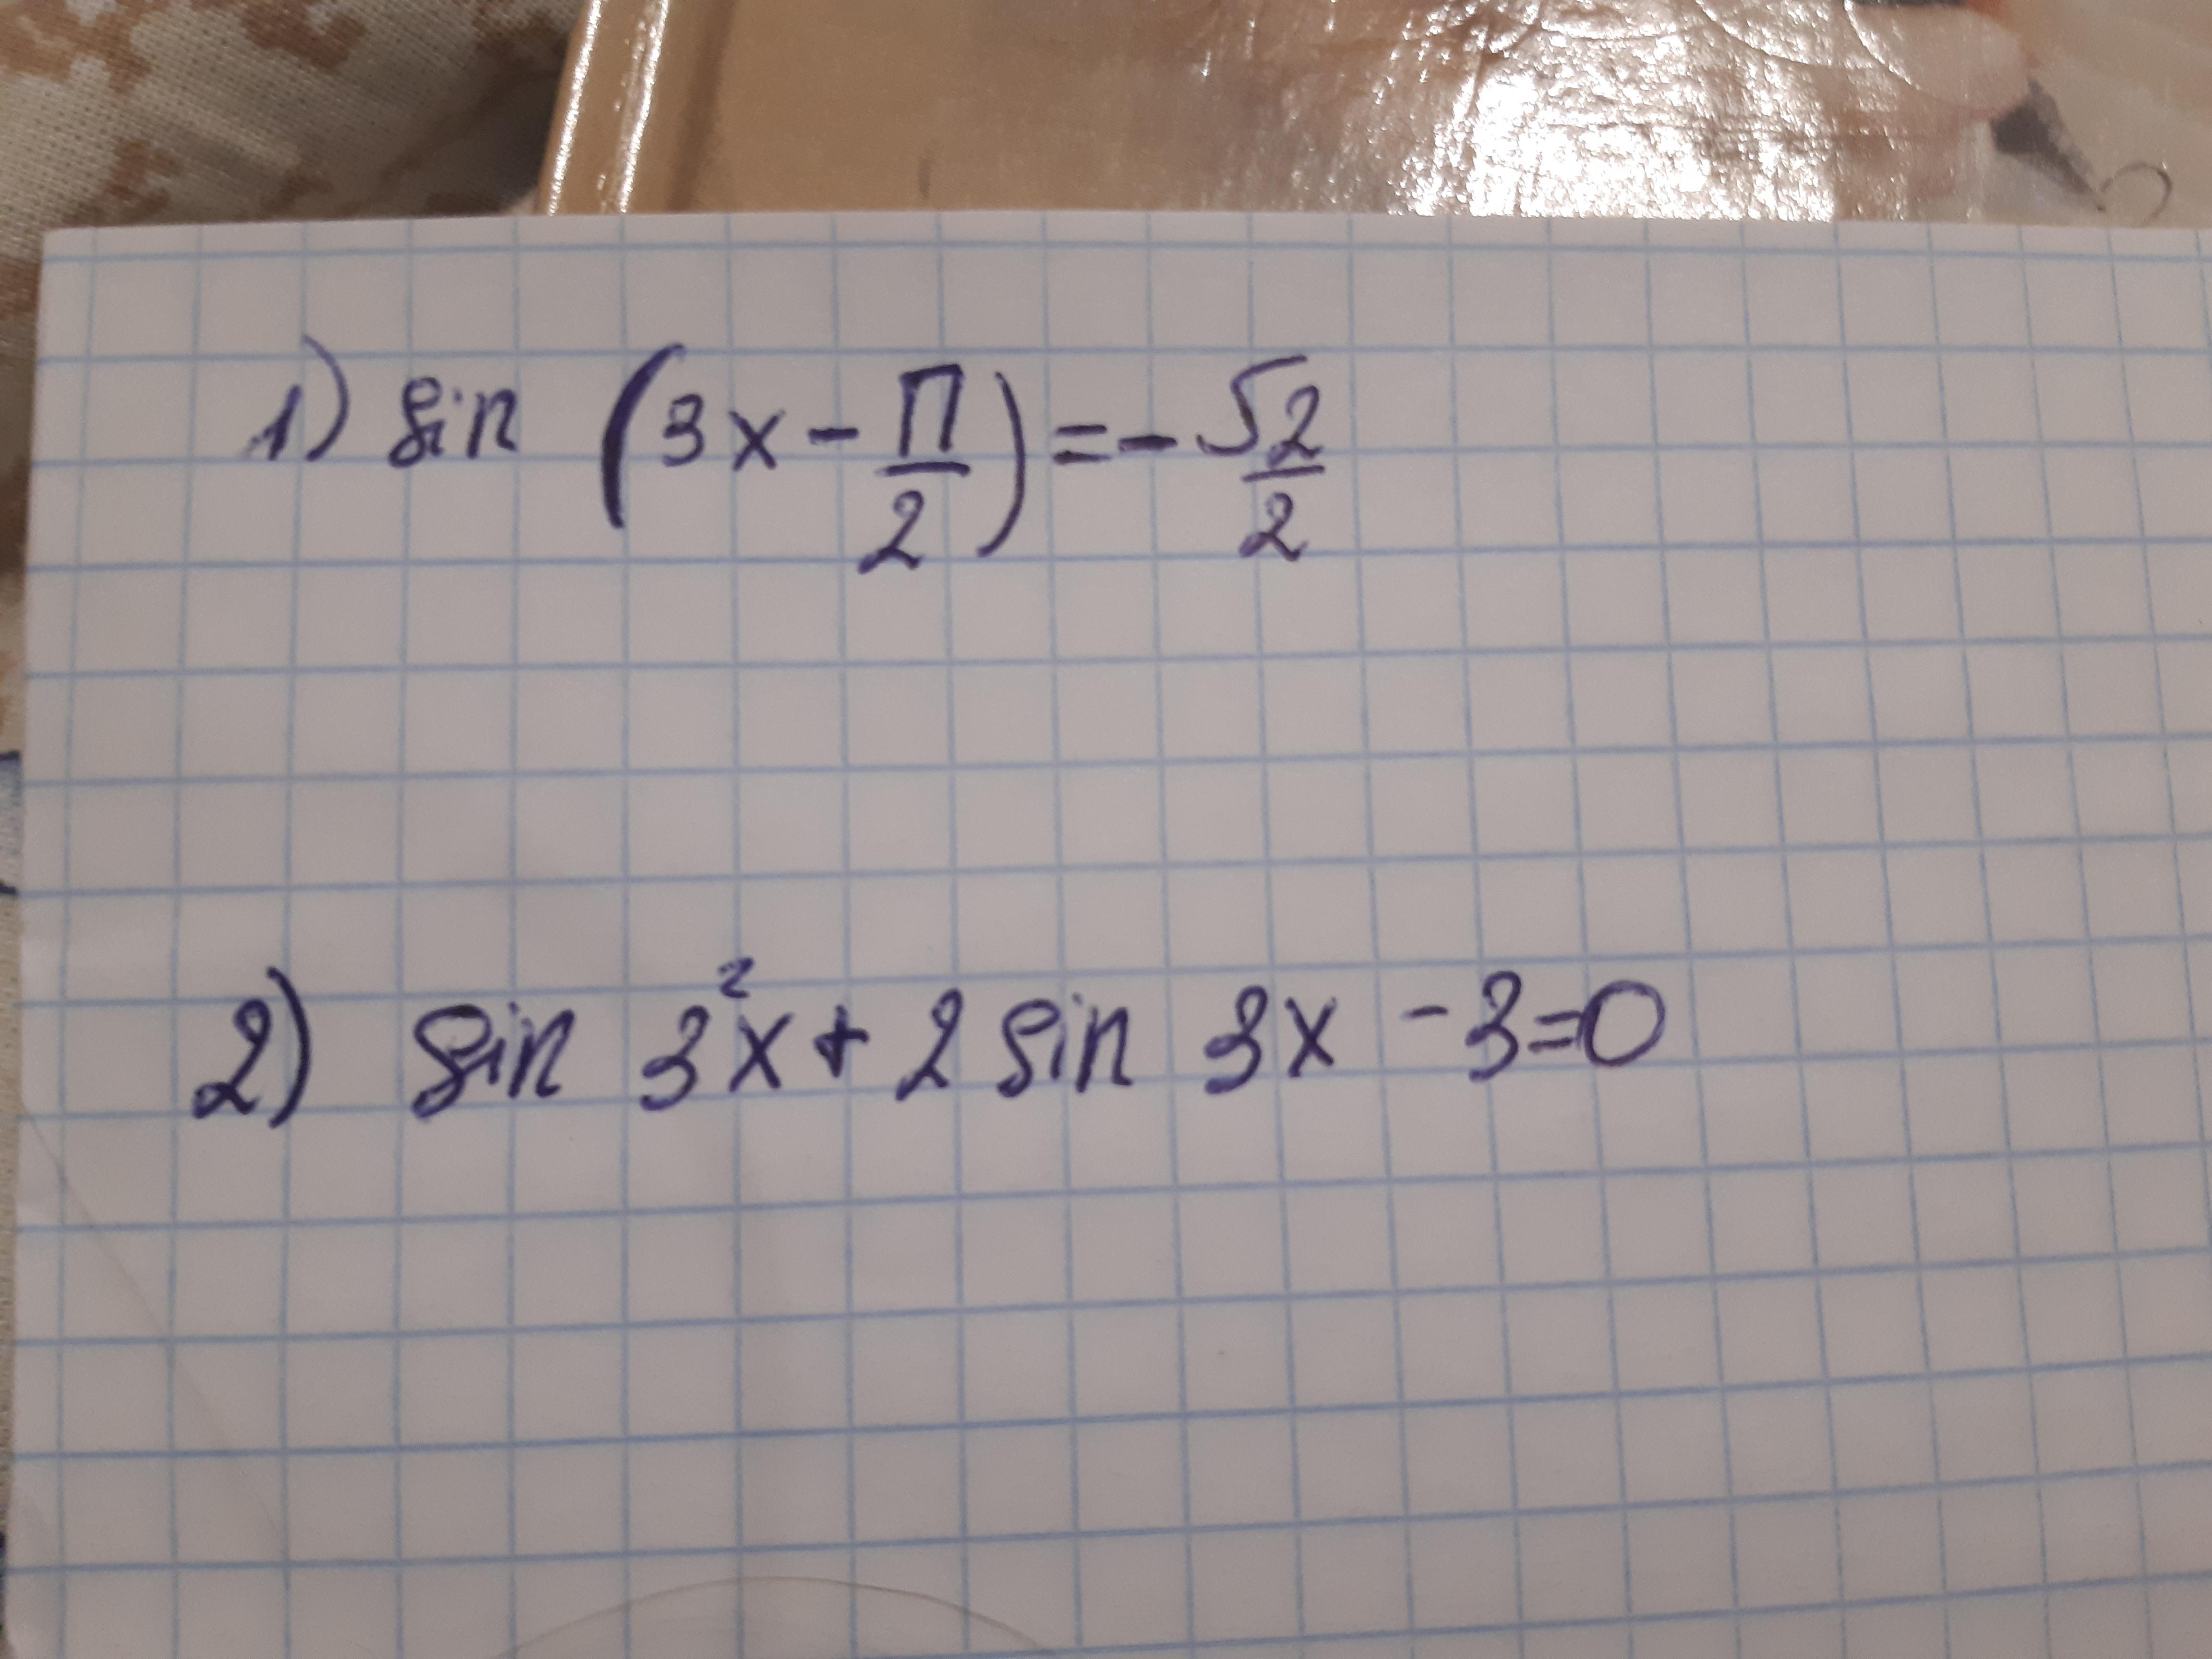 1) sin (3x - П/2) = - √2/2
2) sin 3²x + 2 sin 3x - 3 = 0